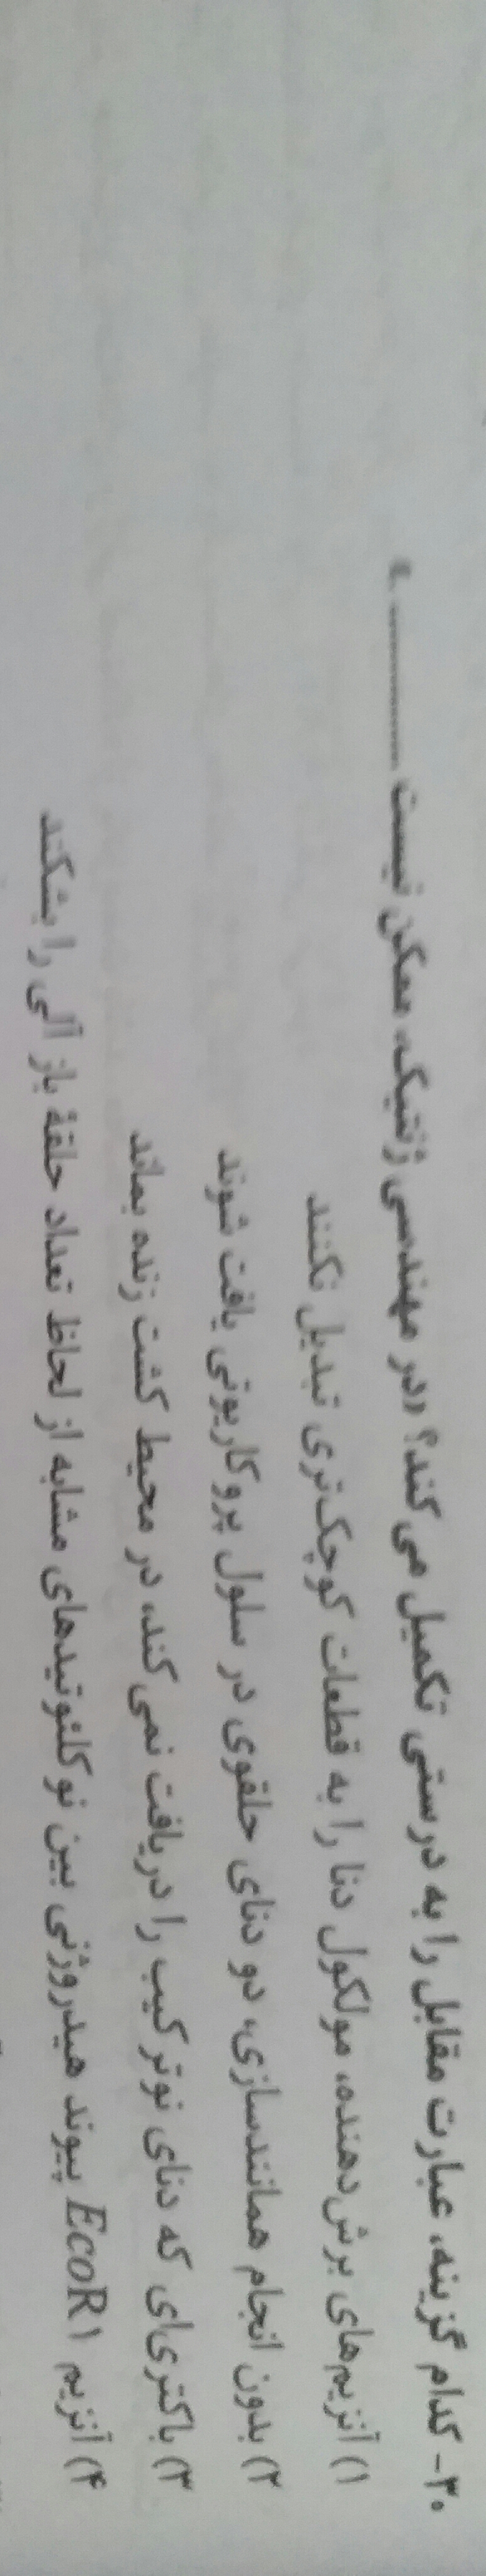 ۳۰- کدام گزینه، عبارت مقابل را به درستی تکمیل می‌کند؟ «در مهندسی ژنتیک، ممکن نیست ............... .»
۱) آنزیم‌های برش‌دهنده، مولکول دنا را به قطعات کوچک‌تری تبدیل نکنند
۲) بدون انجام همانندسازی، دو دنای حلقوی در سلول پروکاریوتی یافت شوند
۳) باکتری‌ای که دنای نوترکیب را دریافت نمی‌کند، در محیط کشت زنده بماند
۴) آنزیم EcoR۱ پیوند هیدروژنی بین نوکلئوتیدهای مشابه از لحاظ تعداد حلقهٔ باز آلی را بشکند